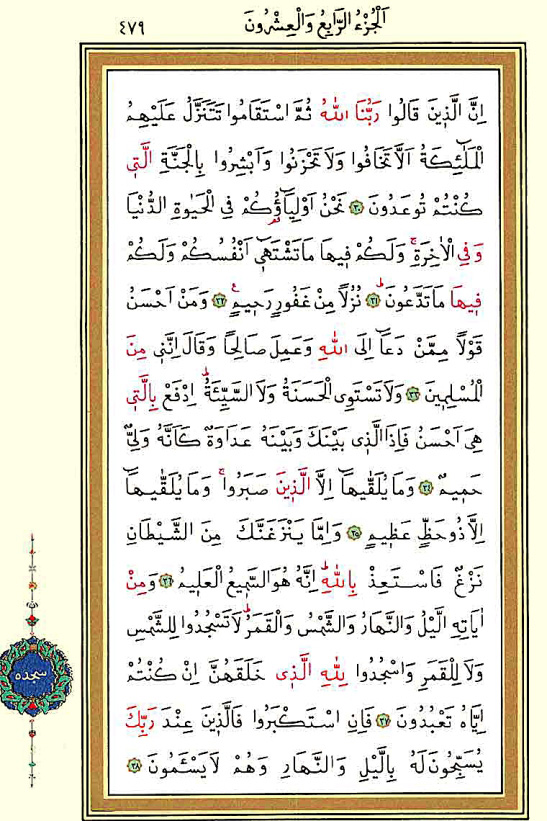 اَلْجُزْءُ الرَّابِعُ وَالْعِشْرُونَ
٤٧٩
اِنَّ الَّذ۪ينَ قَالُوا رَبُّنَا اللّٰهُ ثُمَّ اسْتَقَامُوا تَتَنَزَّلُ عَلَيْهِمُ
الْمَلٰٓئِكَةُ اَلَّا تَخَافُوا وَلَا تَحْزَنُوا وَاَبْشِرُوا بِالْجَنَّةِ الَّت۪ي
كُنْتُمْ تُوعَدُونَ ﴿٣٠﴾ نَحْنُ اَوْلِيَٓاؤُ۬كُمْ فِي الْحَيٰوةِ الدُّنْيَا
وَفِي الْاٰخِرَةِۚ وَلَكُمْ ف۪يهَا مَا تَشْتَه۪ٓي اَنْفُسُكُمْ وَلَكُمْ
ف۪يهَا مَا تَدَّعُونَۜ ﴿٣١﴾ نُزُلًا مِنْ غَفُورٍ رَح۪يمٍ۟ ﴿٣٢﴾ وَمَنْ اَحْسَنُ
قَوْلًا مِمَّنْ دَعَٓا اِلَى اللّٰهِ وَعَمِلَ صَالِحًا وَقَالَ اِنَّن۪ي مِنَ
الْمُسْلِم۪ينَ ﴿٣٣﴾ وَلَا تَسْتَوِي الْحَسَنَةُ وَلَا السَّيِّئَةُۜ اِدْفَعْ بِالَّت۪ي
هِيَ اَحْسَنُ فَاِذَا الَّذ۪ي بَيْنَكَ وَبَيْنَهُ عَدَاوَةٌ كَاَنَّهُ وَلِيٌّ
حَم۪يمٌ ﴿٣٤﴾ وَمَا يُلَقّٰيهَٓا اِلَّا الَّذ۪ينَ صَبَرُواۚ وَمَا يُلَقّٰيهَٓا
اِلَّا ذُو حَظٍّ عَظ۪يمٍ ﴿٣٥﴾ وَاِمَّا يَنْزَغَنَّكَ مِنَ الشَّيْطَانِ
نَزْغٌ فَاسْتَعِذْ بِاللّٰهِۜ اِنَّهُ هُوَ السَّم۪يعُ الْعَل۪يمُ ﴿٣٦﴾ وَمِنْ
اٰيَاتِهِ الَّيْلُ وَالنَّهَارُ وَالشَّمْسُ وَالْقَمَرُۜ لَا تَسْجُدُوا لِلشَّمْسِ
وَلَا لِلْقَمَرِ وَاسْجُدُوا لِلّٰهِ الَّذ۪ي خَلَقَهُنَّ اِنْ كُنْتُمْ
اِيَّاهُ تَعْبُدُونَ ﴿٣٧﴾ فَاِنِ اسْتَكْبَرُوا فَالَّذ۪ينَ عِنْدَ رَبِّكَ
يُسَبِّحُونَ لَهُ بِالَّيْلِ وَالنَّهَارِ وَهُمْ لَا يَسْـَٔمُونَ ﴿٣٨﴾
سجده